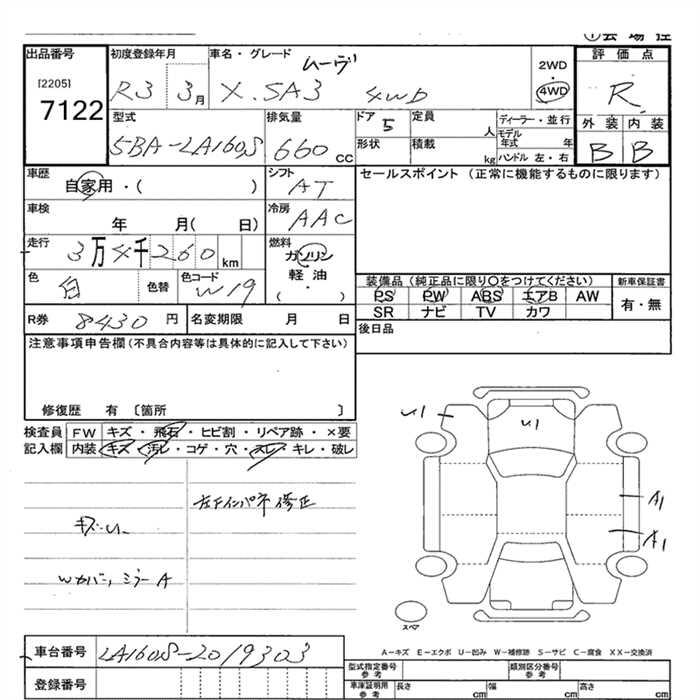 出品番号
[2205]
7122
初度登録年月
R3 3月
車名・グレード
ムーヴ
X.SA3 4WD
2WD
・
4WD
評価点
R
外装 内装
B B
型式
5BA-LA160S
排気量
660 cc
ドア 5
形状
定員 人
積載 kg
ディーラー・並行
モデル年式 年
ハンドル 左・右
車歴
自家用・( )
シフト
AT
車検
年 月( 日)
冷房
AAC
走行
3万4千260 km
燃料
ガソリン
軽油
( ・ )
色 白
色替
色コード W19
R券 8430円
名変期限 月 日
セールスポイント (正常に機能するものに限ります)
装備品(純正品に限り〇をつけてください)
PS PW ABS エアB AW
SR ナビ TV カワ
新車保証書
有・無
後日品
注意事項申告欄(不具合内容等は具体的に記入して下さい)
修復歴 有 〔箇所 〕
検査員記入欄
FW キズ・飛石・ヒビ割・リペア跡・×要
内装 キズ・汚レ・コゲ・穴・スレ・キレ・破レ
左Fインパネ修正
キズ
Wカバー,ミラーA
U1
U1
A1
A1
スペア
A-キズ E-エクボ U-凹み W-補修跡 S-サビ C-腐食 XX-交換済
車台番号 LA160S-2019303
登録番号
型式指定番号
参考
類別区分番号
参考
車庫証明用
参考
長さ cm
幅 cm
高さ cm